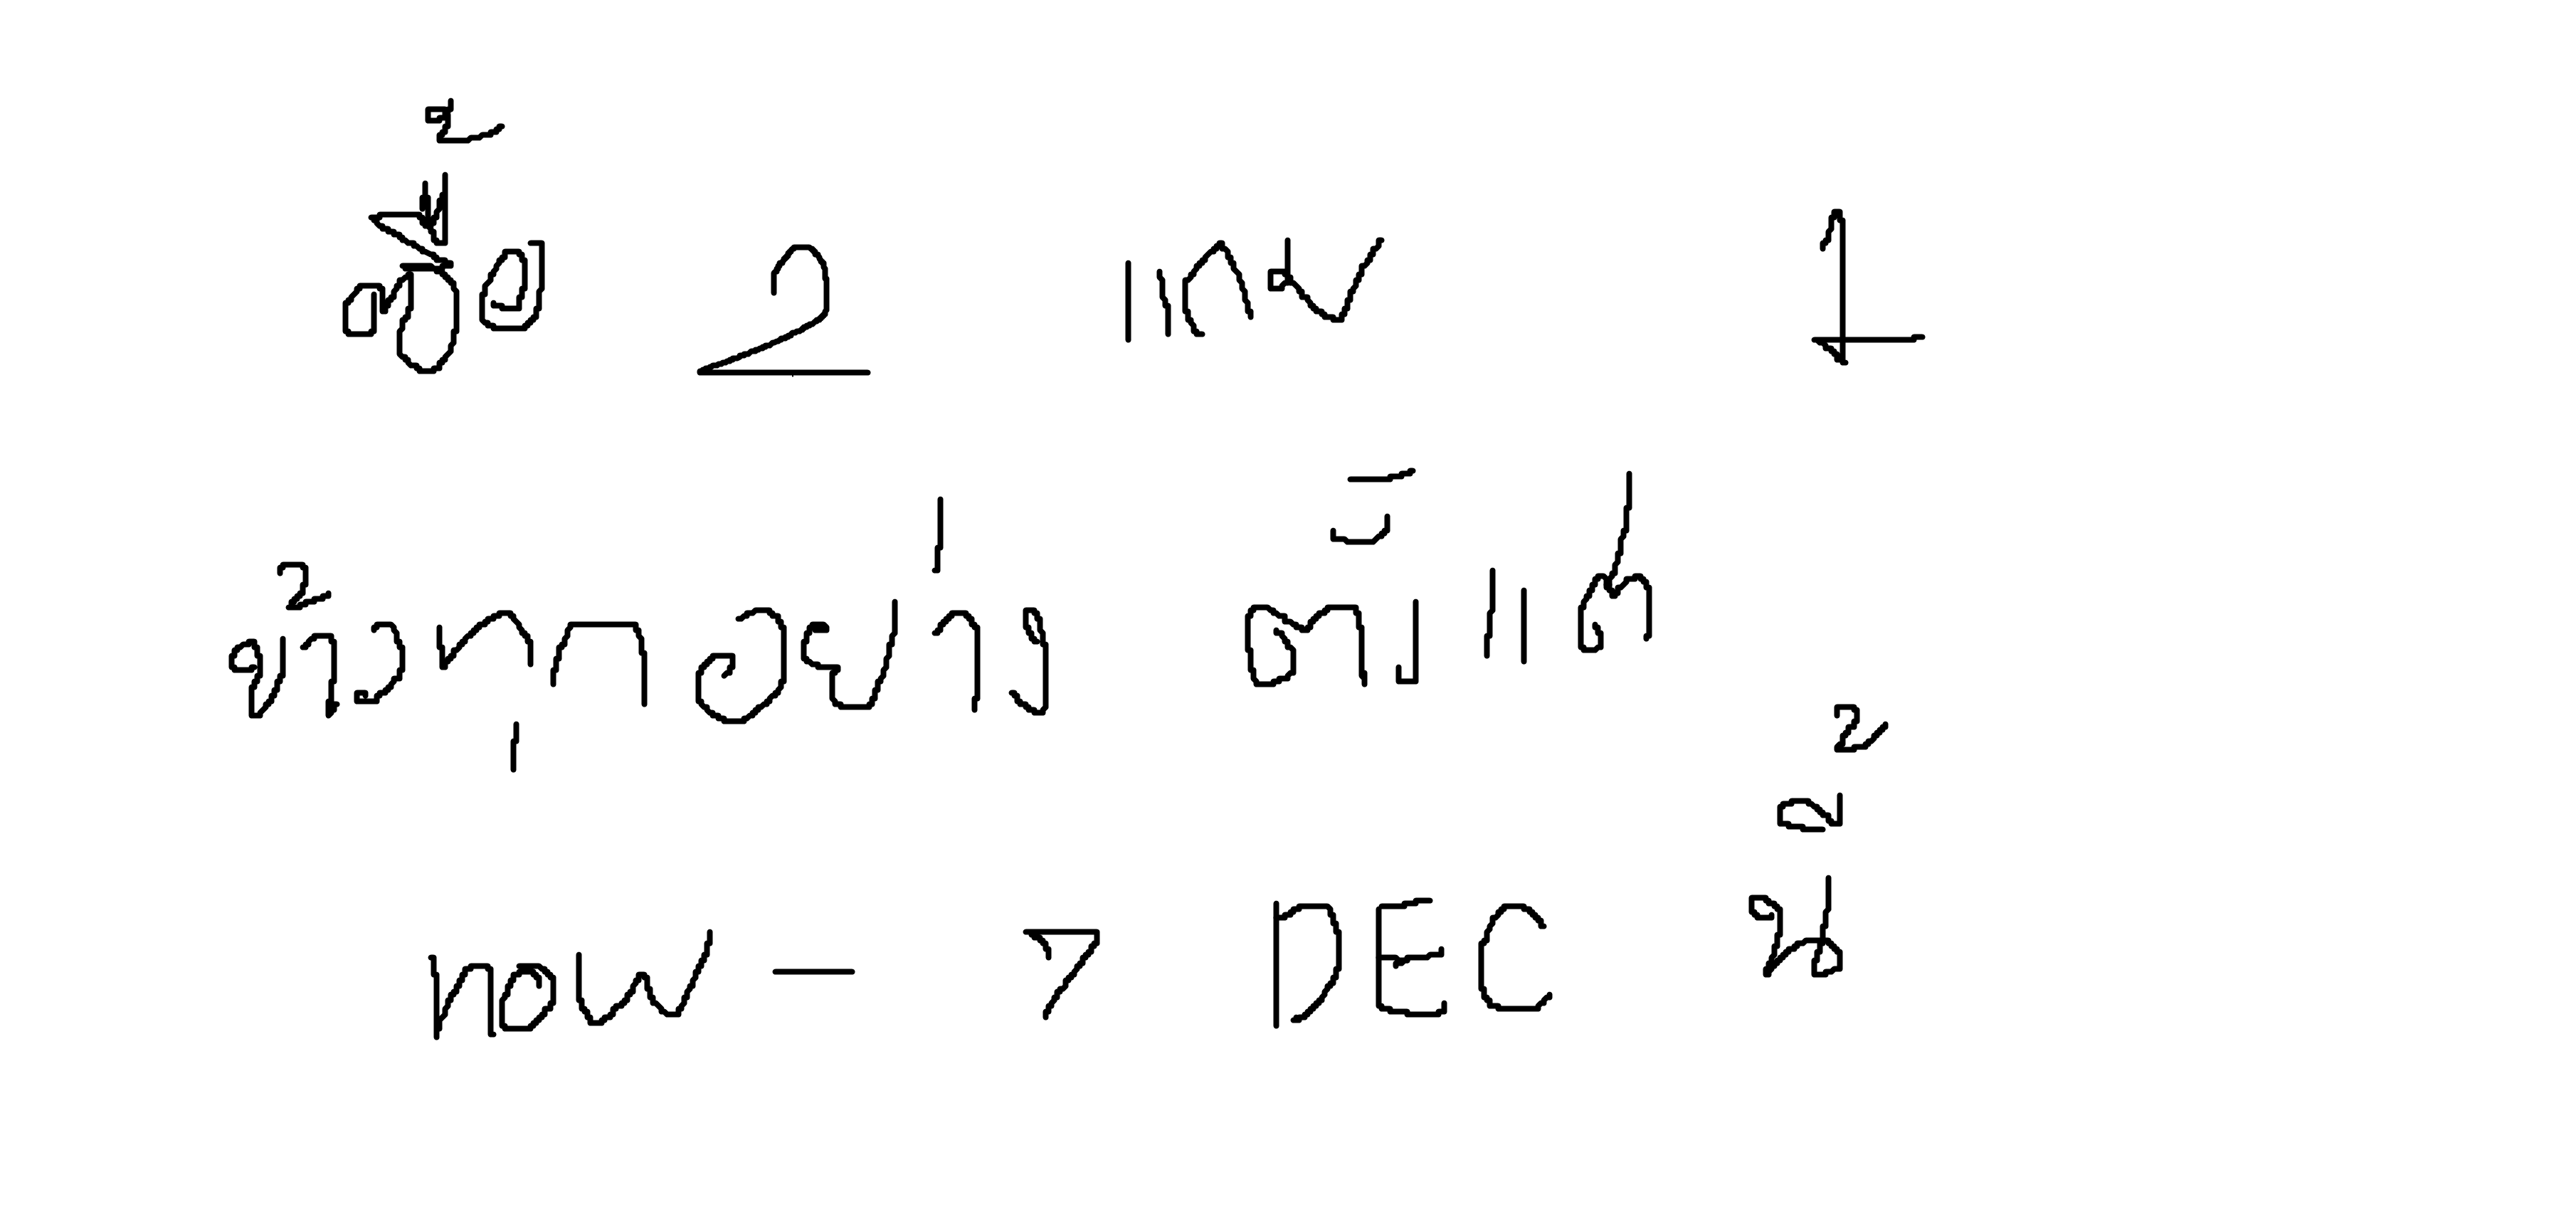 ซื้อ 2 แถม 1
ข้าวทุกอย่าง ตั้งแต่
now - 7 DEC นี้